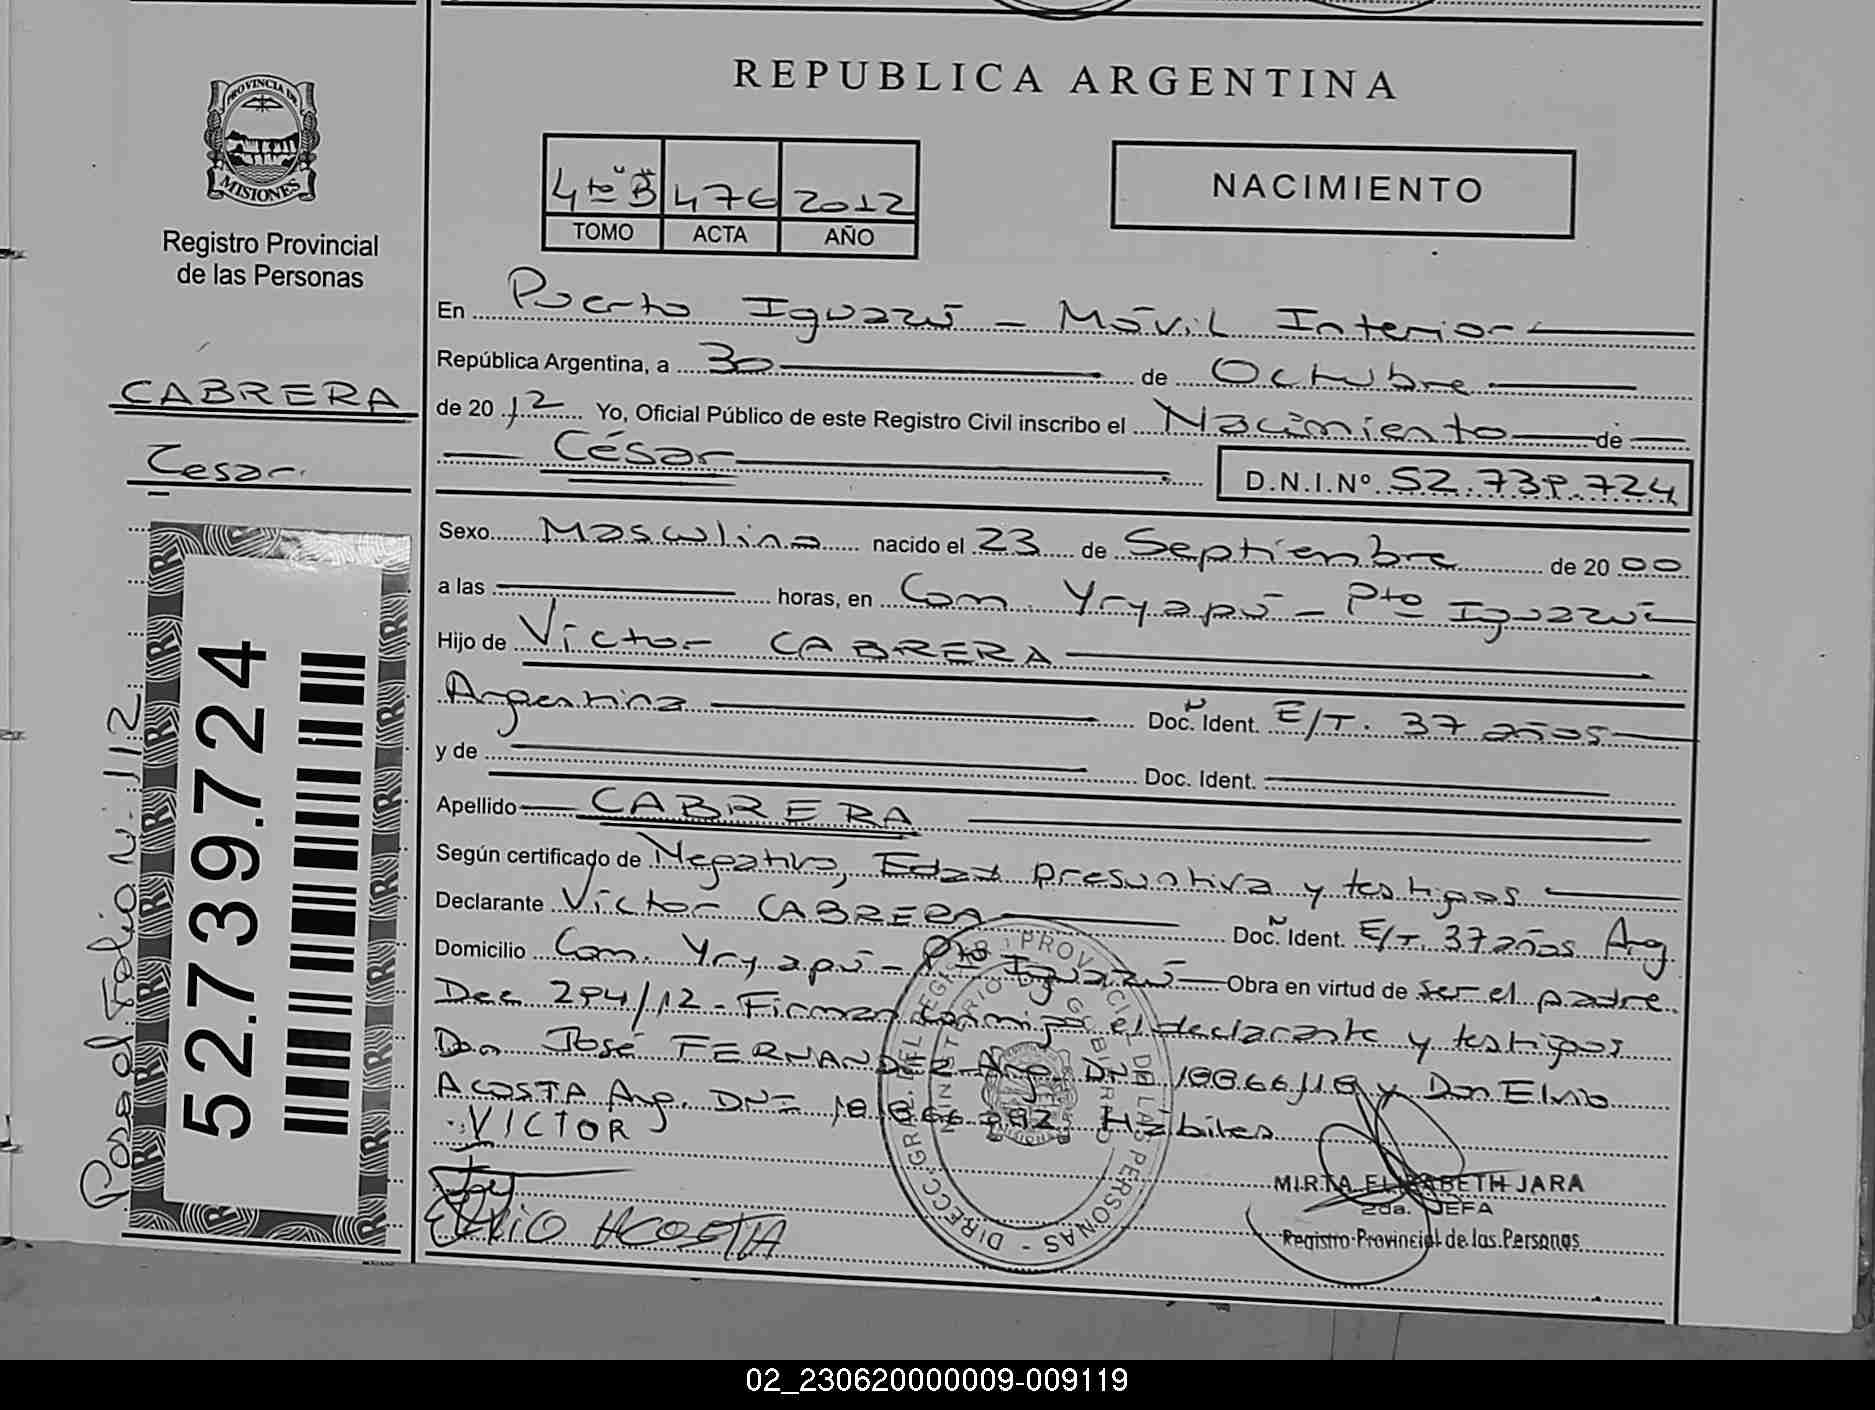 PROVINCIA DE
MISIONES
Registro Provincial
de las Personas
CABRERA
Cesar
52.739.724
Pasa al Folio N: 112
REPUBLICA ARGENTINA
4to "B" 476 2012
TOMO ACTA AÑO
NACIMIENTO
En Puerto Iguazú - Móvil Interior
República Argentina, a 30 de Octubre
de 2012 Yo, Oficial Público de este Registro Civil inscribo el Nacimiento de
César D.N.I.Nº 52.739.724
Sexo Masculino nacido el 23 de Septiembre de 2000
a las horas, en Com. Yryapú - Pto Iguazú
Hijo de Victor CABRERA
Argentina Doc. Ident. E/T. 37 años
y de Doc. Ident.
Apellido CABRERA
Según certificado de Negativo, Edad presuntiva y testigos
Declarante Victor CABRERA Doc. Ident. E/T. 37 años Arg
Domicilio Com. Yryapú - Pto Iguazú Obra en virtud de ser el padre.
Dec 294/12 - Firman conmigo el declarante y testigos
Don José FERNANDEZ Arg. DNI y Don Elvio
ACOSTA Arg. DNI Hábiles
VICTOR
ELVIO ACOSTA
DIRECC. GRAL. DEL REGISTRO PROVINCIAL DE LAS PERSONAS
MINISTERIO DE GOBIERNO
MIRTA ELIZABETH JARA
2da. JEFA
Registro Provincial de las Personas
02_230620000009-009119